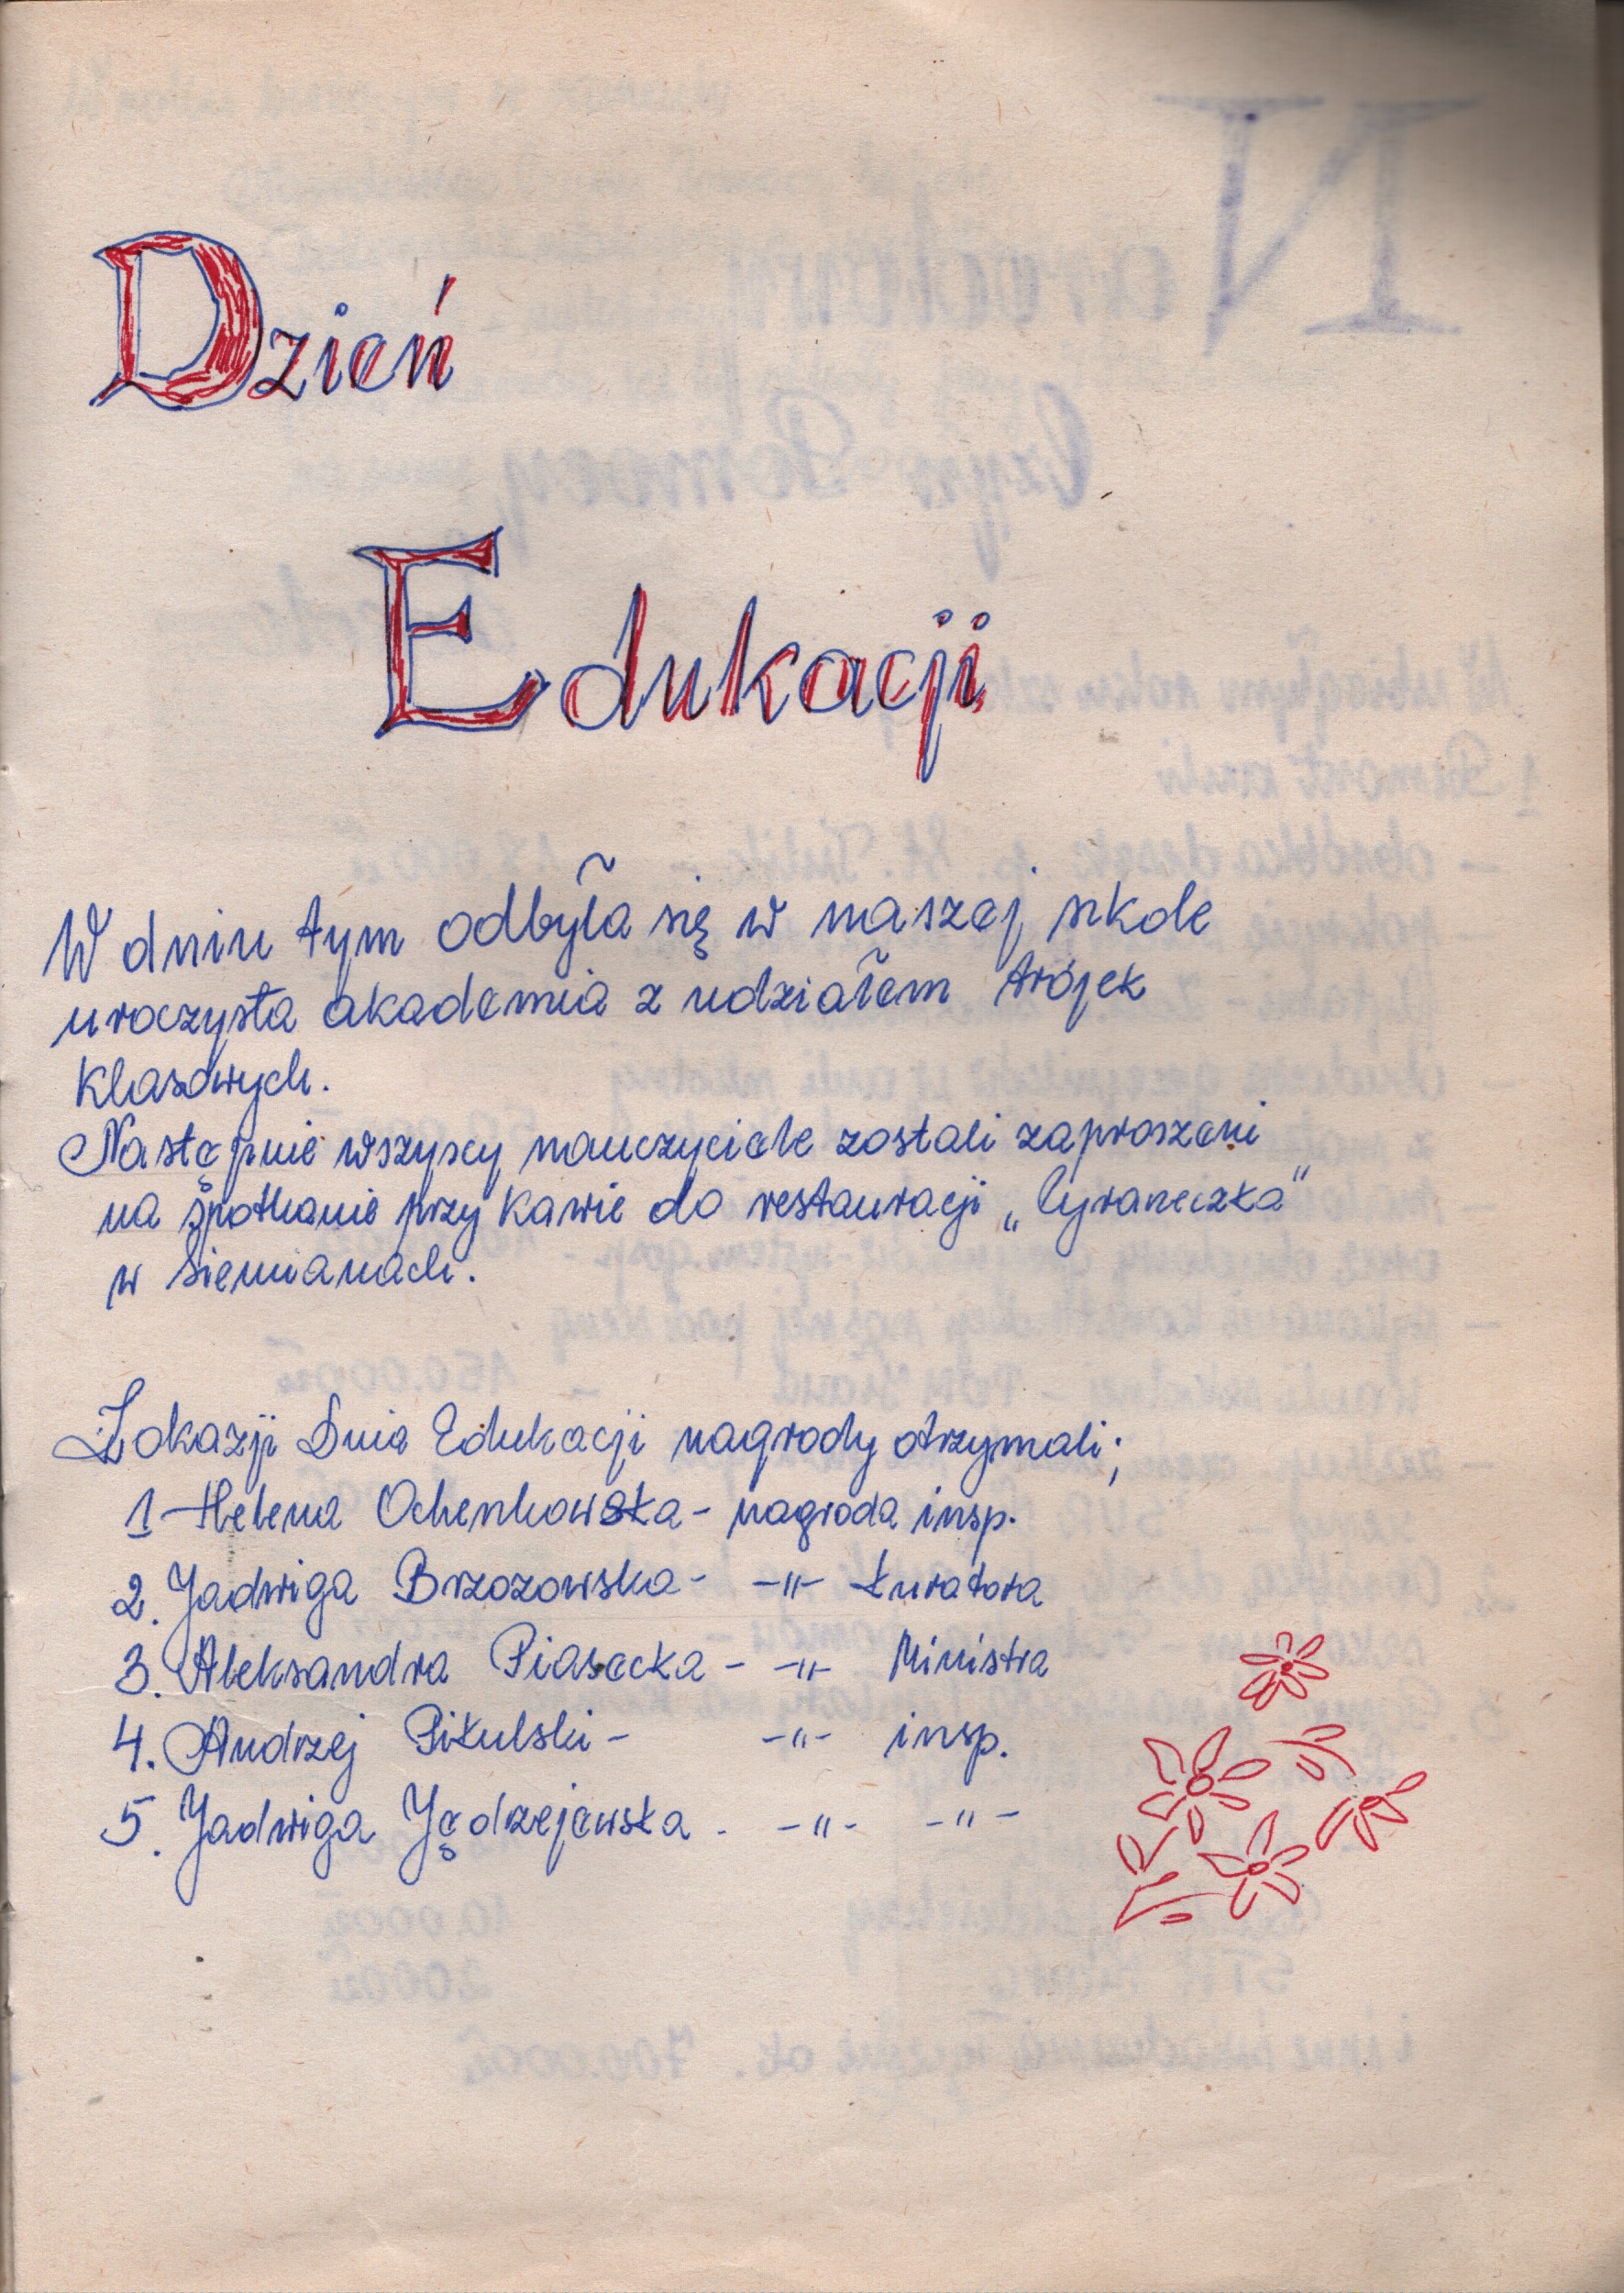 Dzień
Edukacji
W dniu tym odbyła się w naszej szkole
uroczysta akademia z udziałem trójek
klasowych.
Następnie wszyscy nauczyciele zostali zaproszeni
na spotkanie przy kawie do restauracji „Cyraneczka”
w Siemianach.
Z okazji Dnia Edukacji nagrody otrzymali;
1 Helena Ochenkowska - nagroda insp.
2. Jadwiga Brzozowska - -"- Kuratora
3. Aleksandra Piasecka - -"- Ministra
4. Andrzej Pikulski - -"- insp.
5. Jadwiga Jędrzejewska - -"- -"-